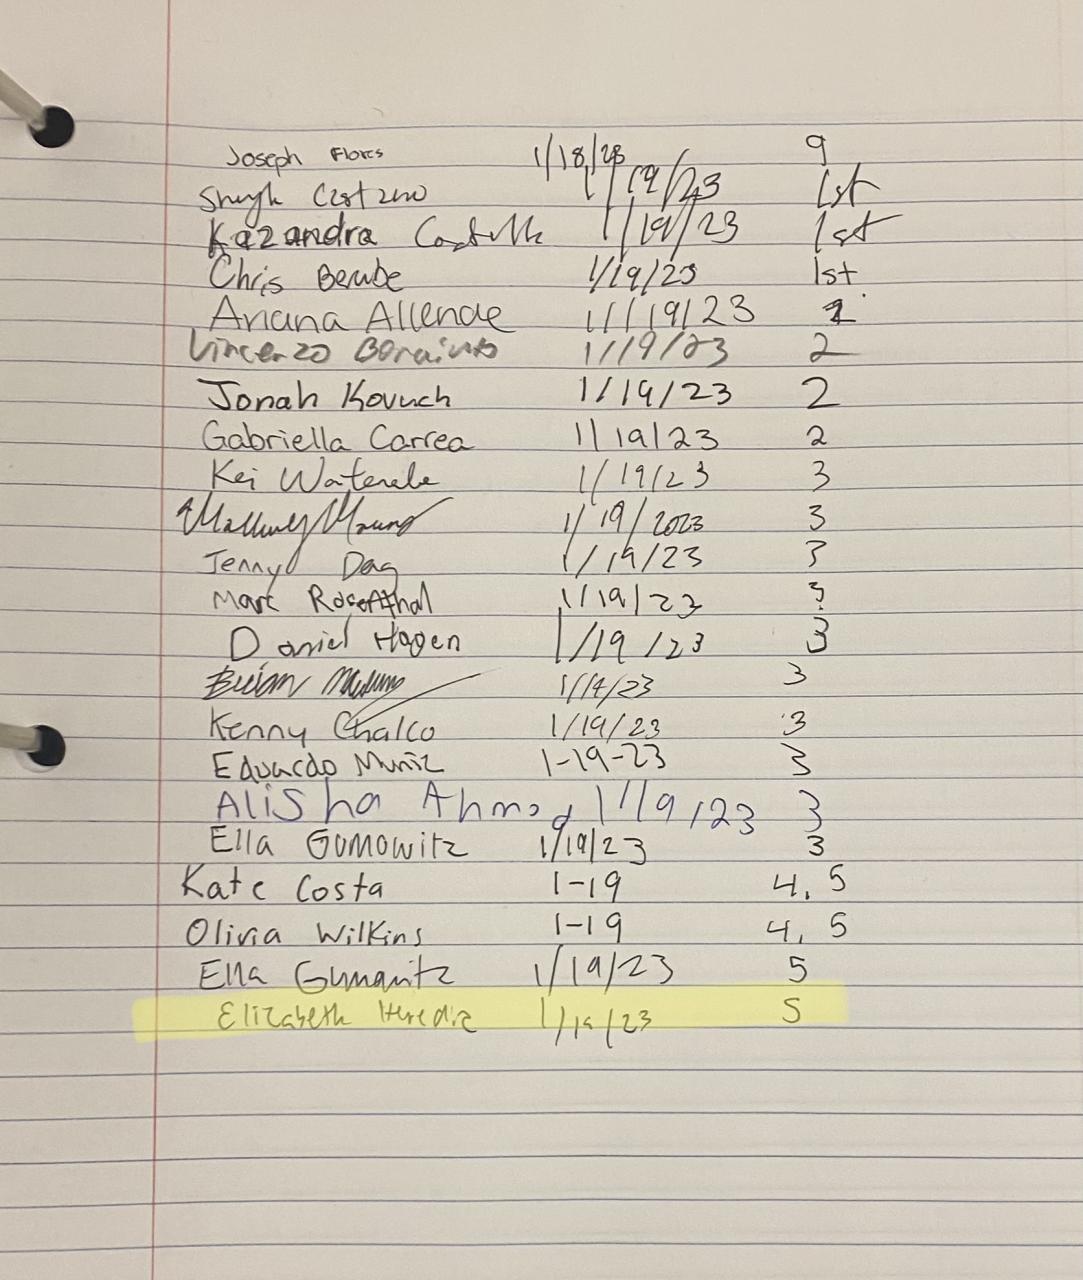 Joseph Flores 1/18/23 9
1/19/23 1st
Kazandra 1/19/23 1st
Chris Berube 1/19/23 1st
Ariana Allende 1/19/23
Vincenzo 1/19/23 2
Jonah 1/19/23 2
Gabriella Correa 1/19/23 2
Kei 1/19/23 3
1/19/2023 3
Jenny 1/19/23 3
Marc Rosenthal 1/19/23 3
Daniel Hagen 1/19/23 3
Brian 3
Kenny Chalco 1/19/23 3
Eduardo Muñiz 1-19-23 3
Alisha Ahmed 1/19/23 3
Ella Gomowitz 1/19/23 3
Kate Costa 1-19 4, 5
Olivia Wilkins 1-19 4, 5
Ella 1/19/23 5
Elizabeth Heredia 1/19/23 5